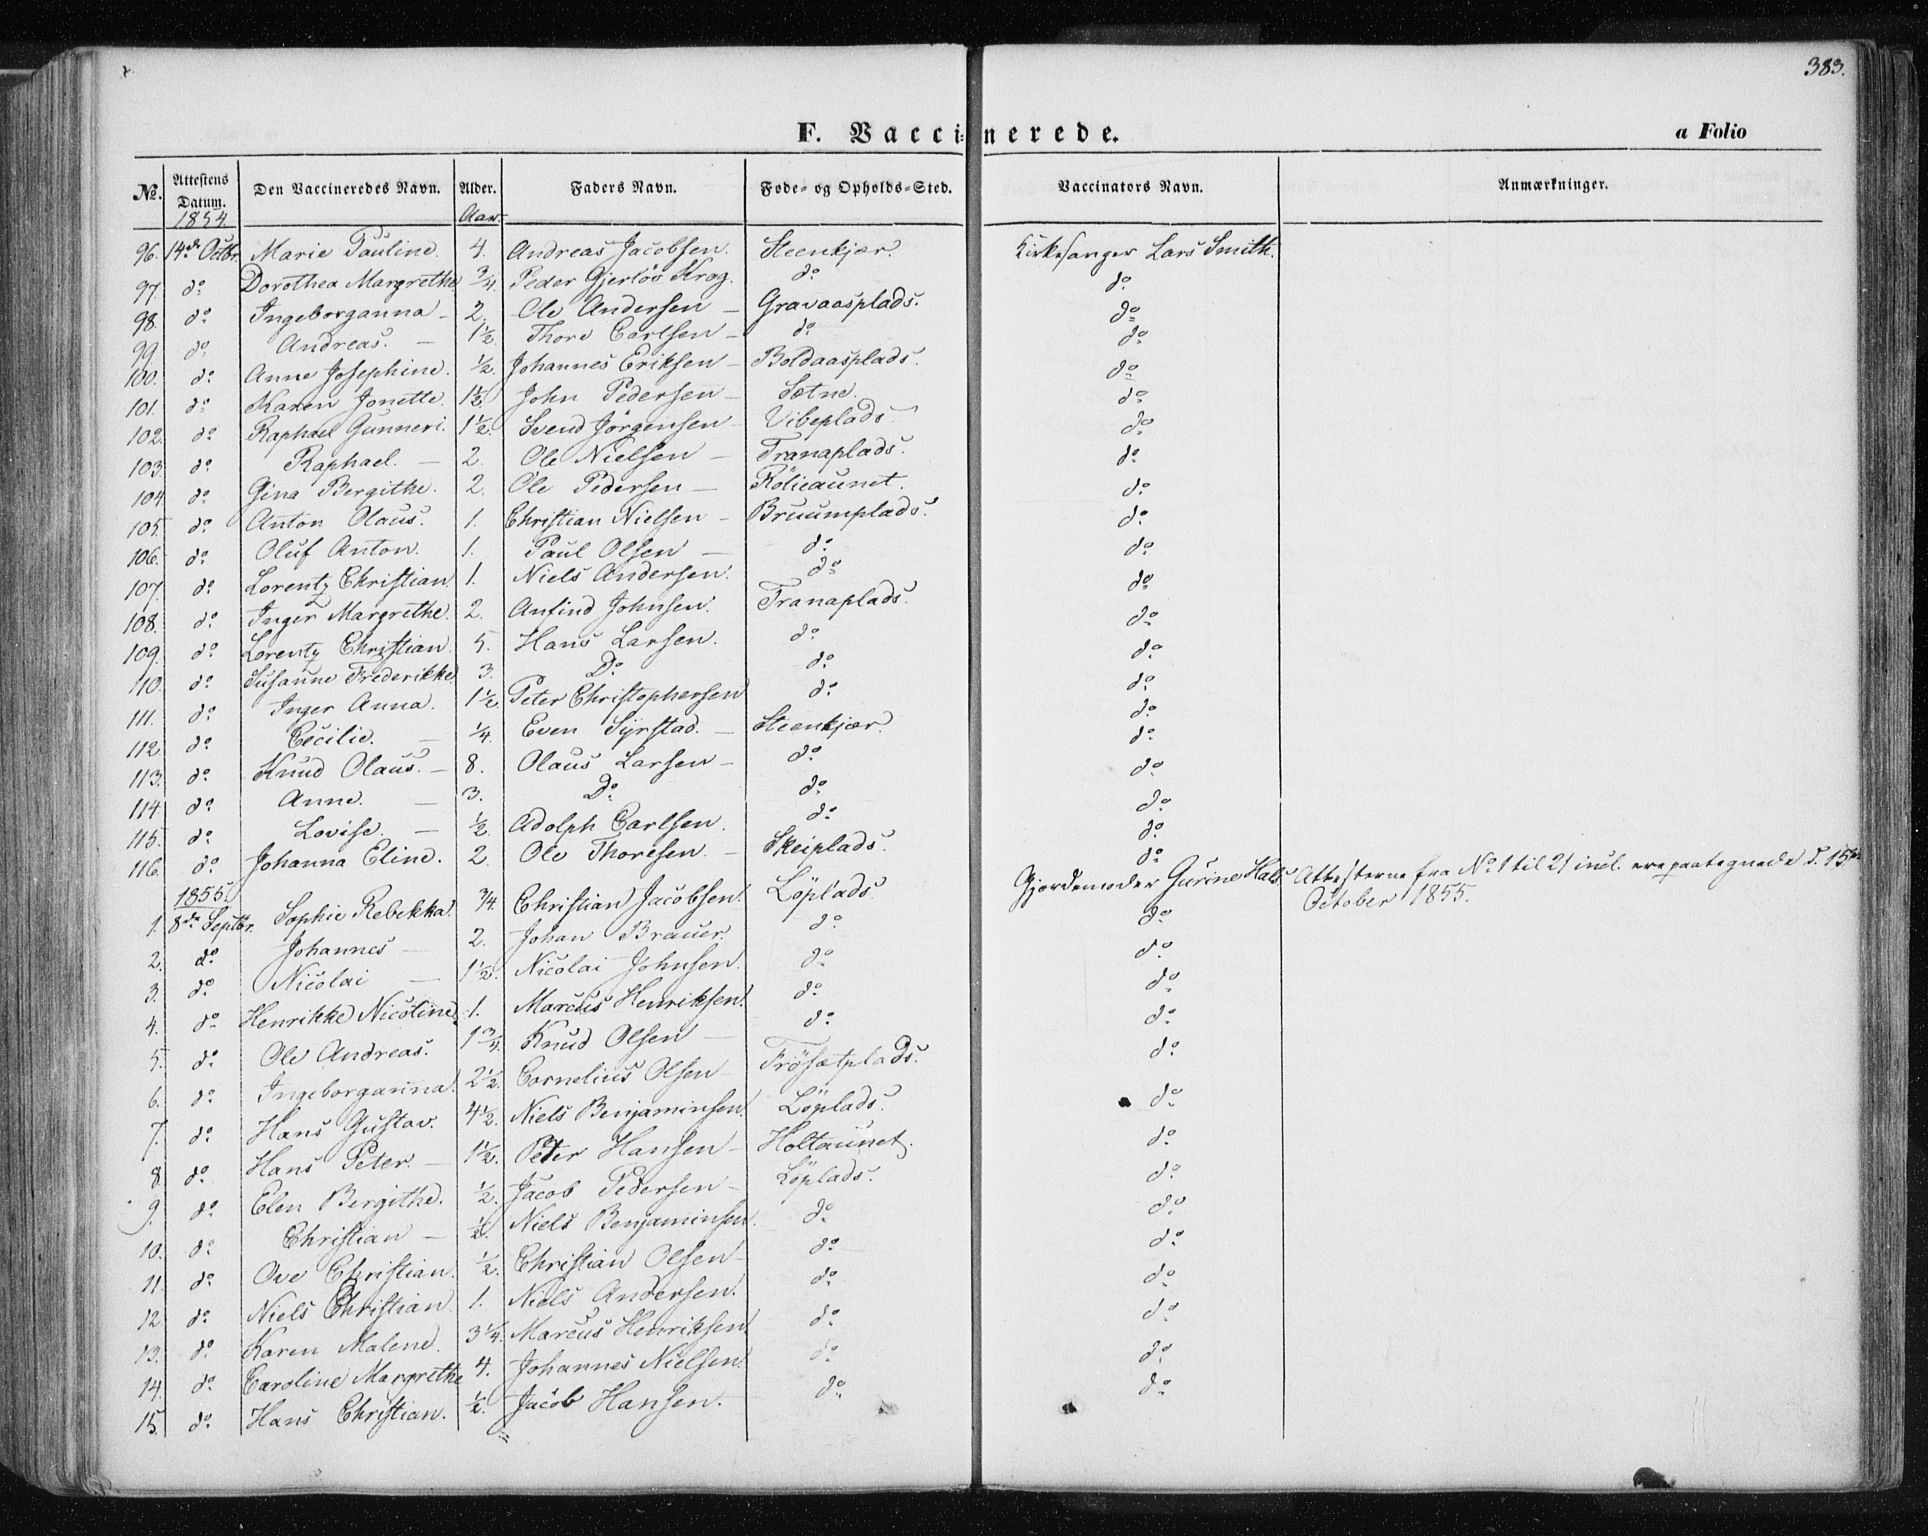 383.
F. Vaccinerede.
a Folio
No. Attestens Datum. Den Vaccineredes Navn. Alder. Faders Navn. Føde- og Opholds-Sted. Vaccinators Navn. Anmærkninger.
1854 Aar.
96. 14de Octbr. Marie Pauline. 4. Andreas Jacobsen. Steenkjær. Kirkesanger Lars Smith.
97. do Dorothea Margrethe 3/4. Peder Gjerløs Krog. do do
98. do Ingeborganna 2. Ole Andersen Gravaasplads. do
99. do Andreas. 1 1/2. Thore Carlsen do do
100. do Anne Josephine. 1/2. Johannes Eriksen Boldaasplads. do
101. do Karen Jonette. 1 1/2. John Pedersen Sætne. do
102. do Raphael Gunneri. 1 1/2. Svend Jørgensen Vibeplads. do
103. do Raphael. 2. Ole Nielsen Tranaplads. do
104. do Gina Bergithe. 2. Ole Pedersen do
105. do Anton Olaus. 1. Christian Nielsen Bruumplads. do
106. do Oluf Anton. 1. Paul Olsen do do
107. do Lorentz Christian 1. Niels Andersen. do do
108. do Inger Margrethe. 2. Anfind Johnsen. Tranaplads. do
109. do Lorentz Christian. 5. Hans Larsen. do do
110. do Susanne Frederikke 3. Do do do
111. do Inger Anna. 1 1/2. Peter Christophersen do do
112. do Cecilie. 1/4. Even Syrstad. Steenkjær. do
113. do Knud Olaus. 8. Olaus Larsen do do
114. do Anne. 3. Do do do
115. do Lovise. 1/2. Adolph Carlsen. do do
116. do Johanna Eline. 2. Ole Thoresen. Skeiplads. do
1855.
1. 8de Septbr. Sophie Rebekka. 3/4. Christian Jacobsen. Löplads. Gjordemoder Gurine Hals. Attesterne fra No 1 til 21 incl. ere paategnede d. 15de
October 1855.
2. do Johannes 2. Johan Brauer. do do
3. do Nicolai 1 1/2. Nicolai Johnsen. do do
4. do Henrikke Nicoline. 1. Marcus Henriksen. do do
5. do Ole Andreas. 1 3/4. Knud Olsen do do
6. do Ingeborganna. 2 1/2. Cornelius Olsen Frösætplads. do
7. do Hans Gustav. 4 1/2. Niels Benjaminsen. Löplads. do
8. do Hans Peter. 1 1/2. Peter Hansen Holtaunet. do
9. do Elen Bergithe. 1/2. Jacob Pedersen Löplads. do
10. do Christian 1/2. Niels Benjaminsen. do do
11. do Ove Christian. 1/2. Christian Olsen do do
12. do Niels Christian 1. Niels Andersen. do do
13. do Karen Malene. 3 1/4. Marcus Henriksen. do do
14. do Caroline Margrethe 4. Johannes Nielsen. do do
15. do Hans Christian. 1/2. Jacob Hansen. do do